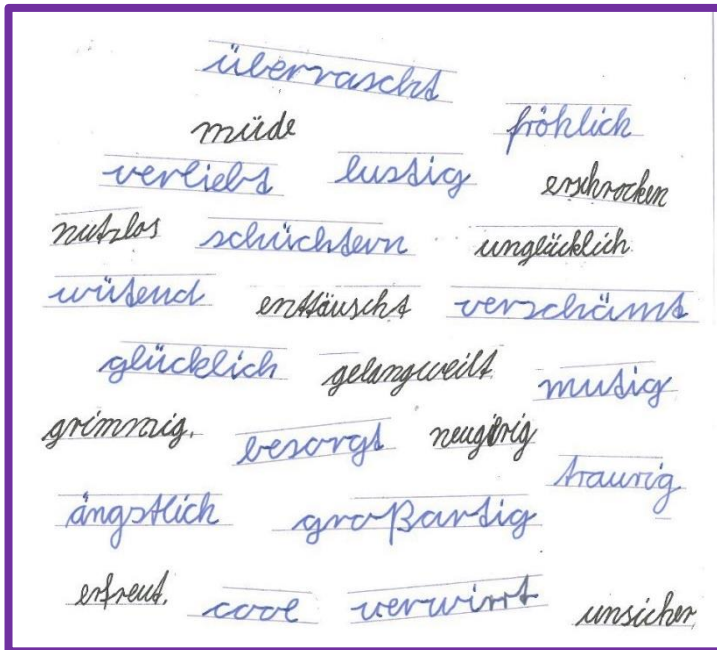 überrascht
müde fröhlich
verliebt lustig erschrocken
nutzlos schüchtern unglücklich
wütend enttäuscht verschämt
glücklich gelangweilt mutig
grimmig. besorgt neugierig
traurig
ängstlich großartig
erfreut. cool verwirrt unsicher